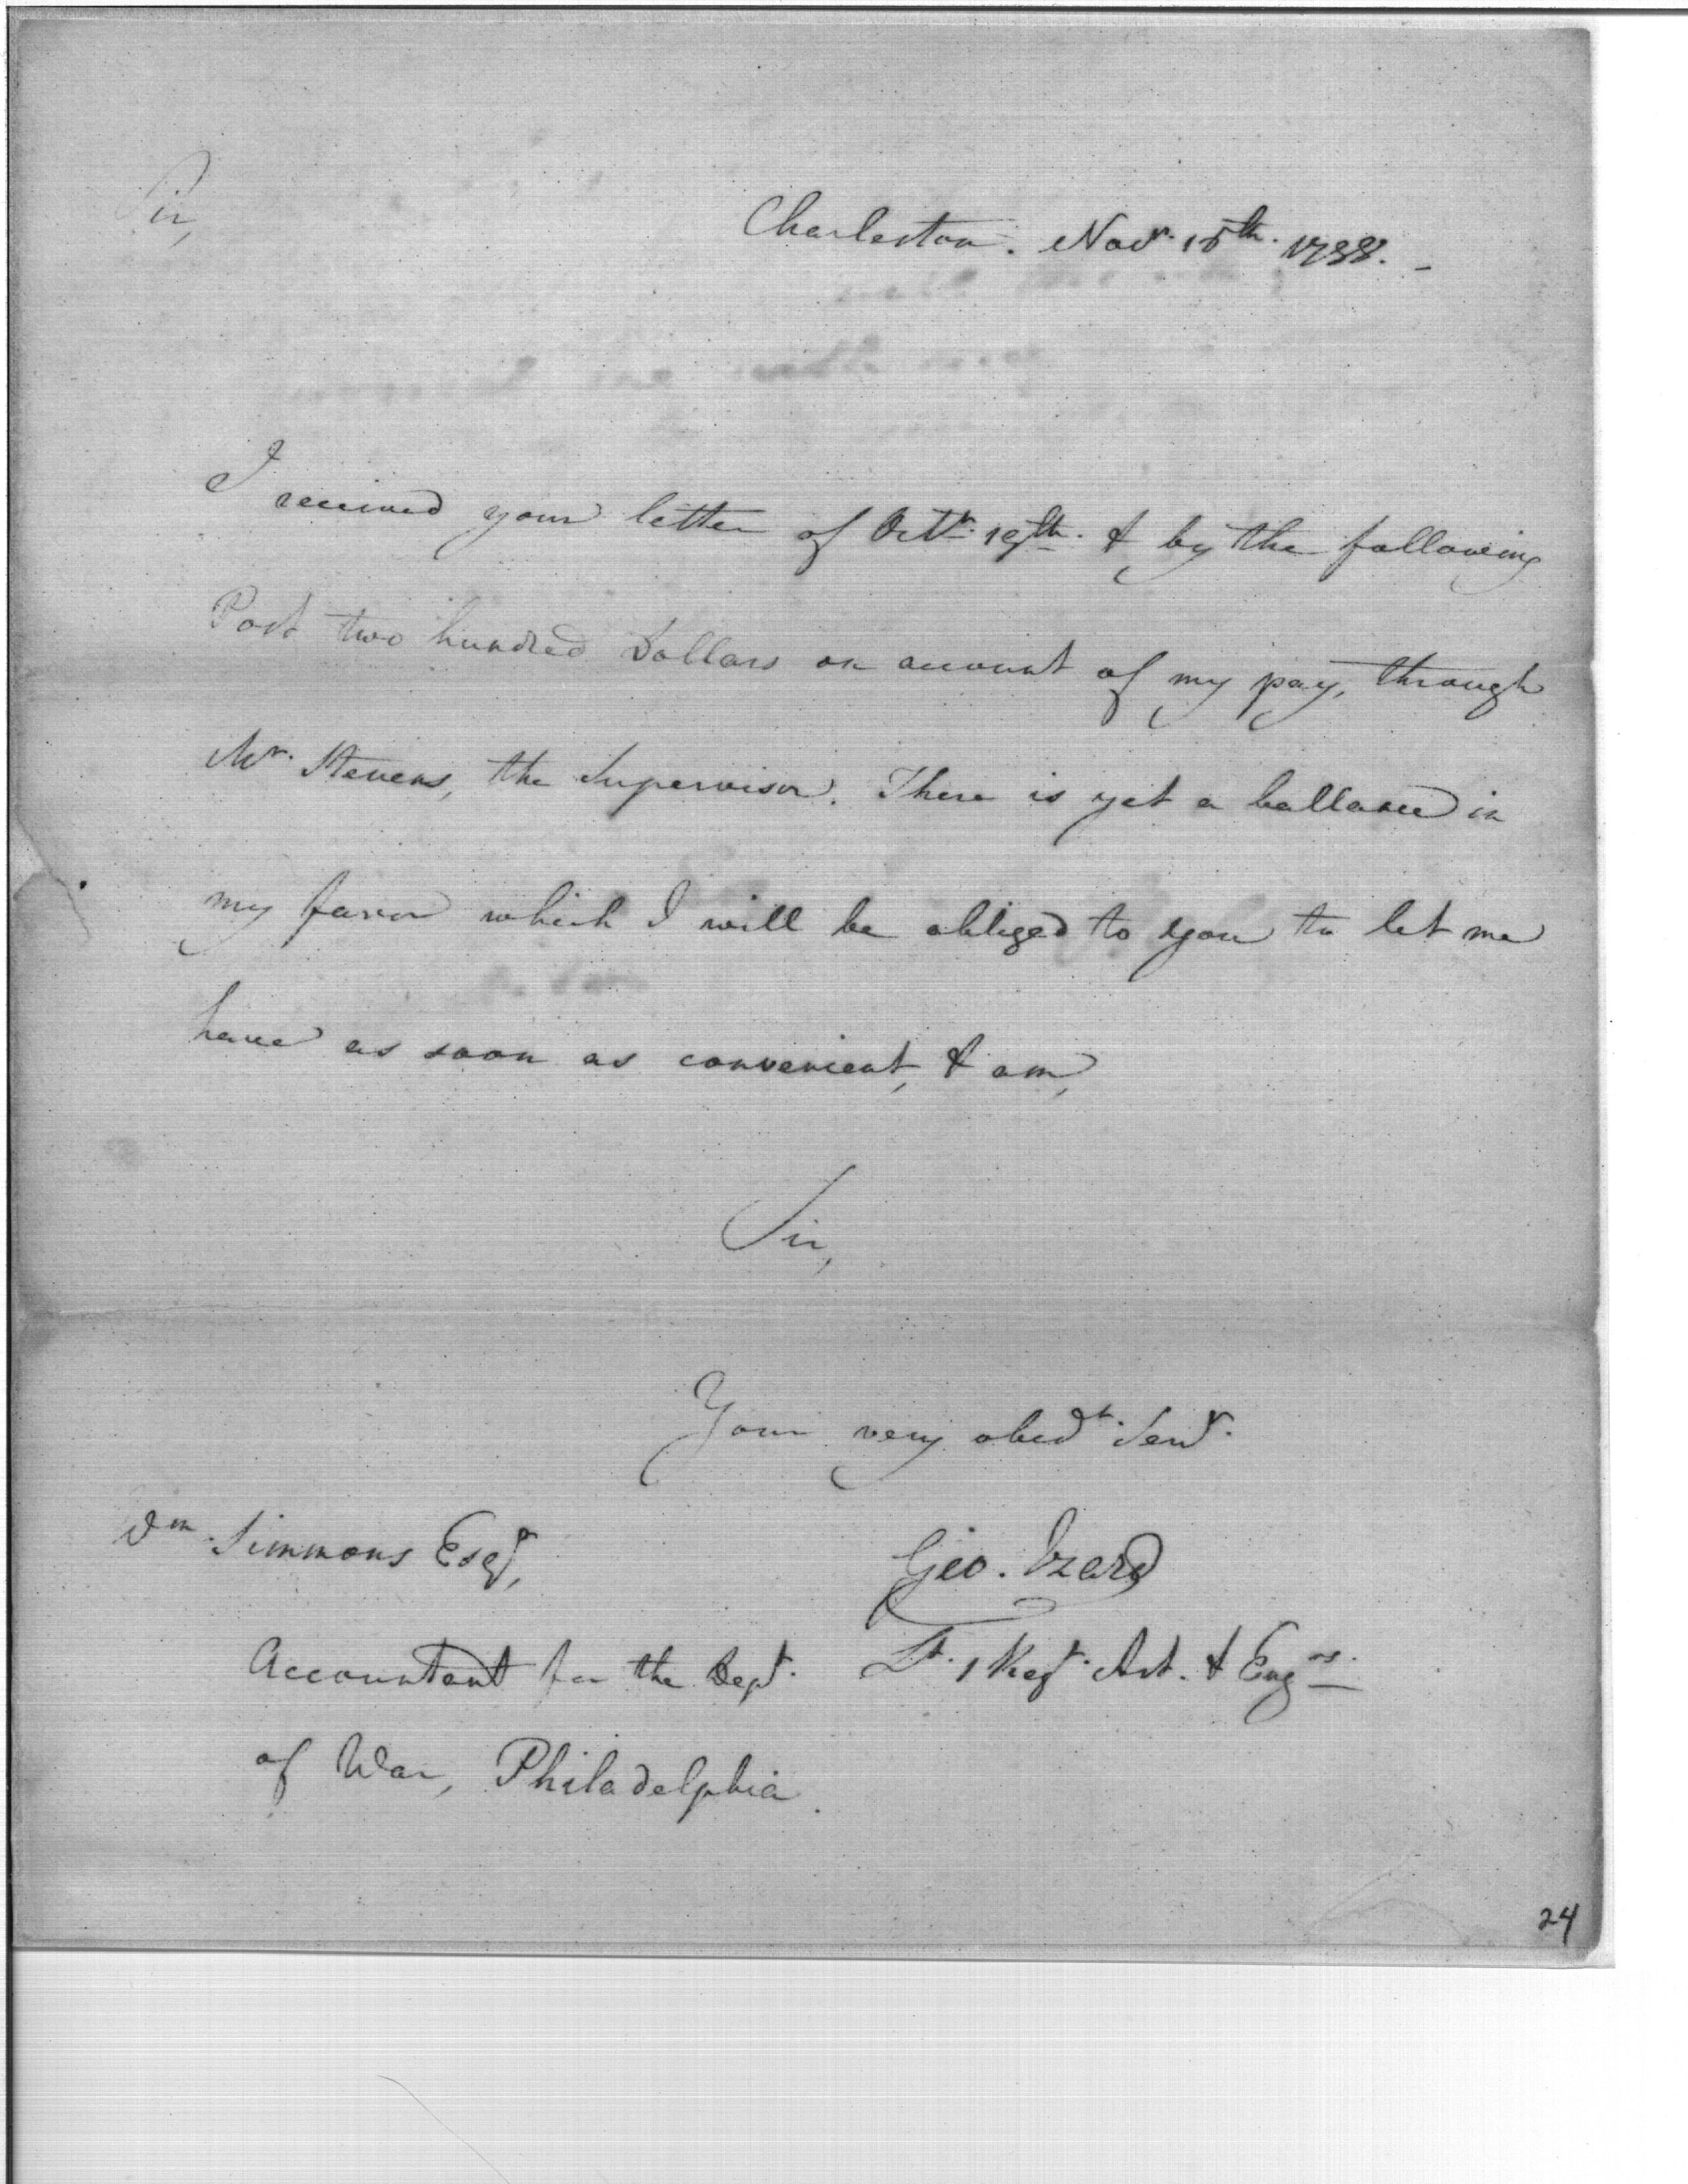 Sir,
Charleston. Novr. 15th. 1798. -
I received your letter of Octr. 19th. & by the following
Post two hundred Dollars on account of my pay, through
Mr. Stevens, the Supervisor. There is yet a ballance in
my favor which I will be obliged to you to let me
have as soon as convenient, & am,
Sir,
Your very obedt. Servt.
Wm. Simmons Esqr,
Geo. Izard
Accountant for the Dept.
Lt. 1 Regt. Art. & Engrs.
of War, Philadelphia.
24